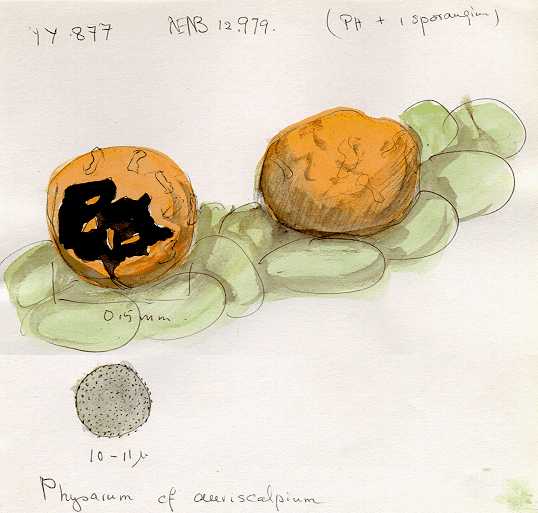 YY 877 AEAB 12.979. (PH + 1 sporangium)
0,5 mm.
10-11µ
Physarum cf auriscalpium